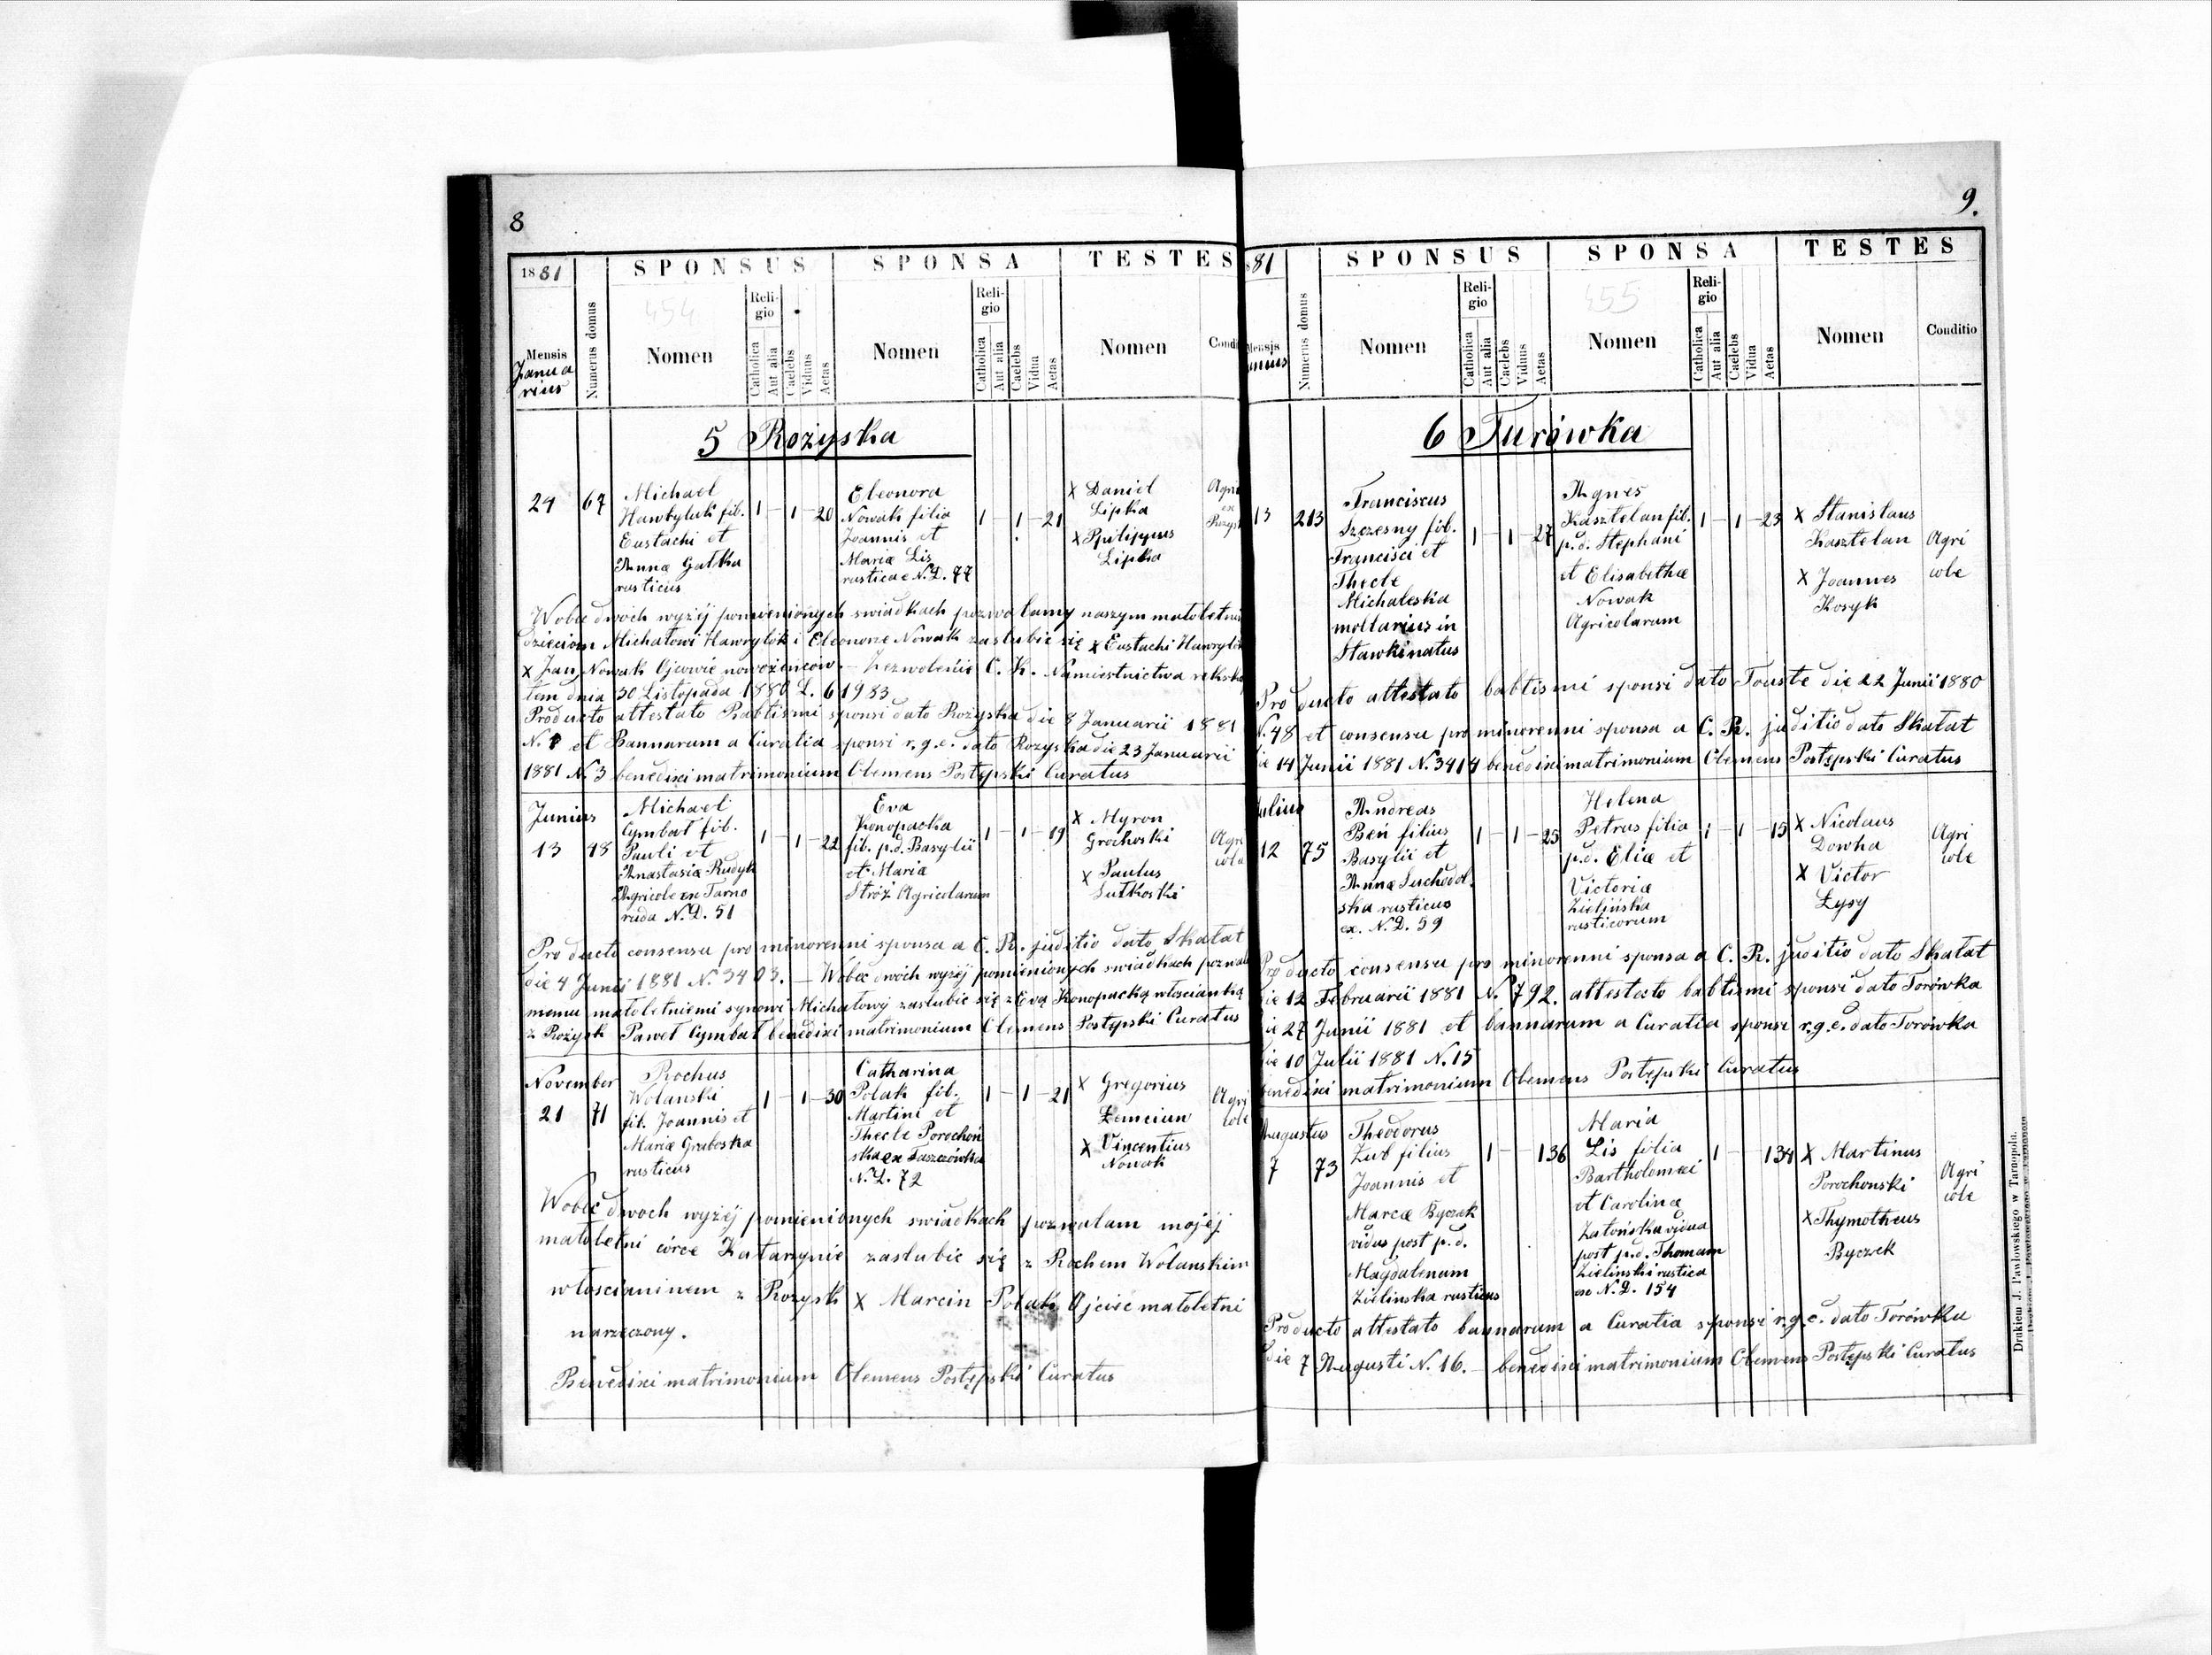 8
1881
SPONSUS
SPONSA
TESTES
Mensis
Januarius
Numerus domus
454
Nomen
Religio
Catholica
Aut alia
Caelebs
Viduus
Aetas
Nomen
Religio
Catholica
Aut alia
Caelebs
Vidua
Aetas
Nomen
5 Rożyska
24
67
Michael
Hawryluk fil.
Eustachi et
Annæ Gałka
rusticus
1 1 20
Eleonora
Nowak filia
Joannis et
Mariæ Lis
rusticae N.D. 77
1 1 21
x Daniel
Lipka
x Philippus
Lipka
Wobec dwoch wyżej pomienionych swiadkach pozwalamy naszym małoletni
dzieciom Michałowi Hawrylók i Eleonorze Nowak zaslubic się x Eustachi Hawrylók
x Jan Nowak Ojcowie nowożeńców. – Zezwolenie C. K. Namiestnictwa
tem dnia 30 Listopada 1880 L. 61983
Producto attestato Babtismi sponsi dato Rożyska die 8 Januarii 1881
N. 1 et Bannarum a Curatia sponsi r.g.c. dato Rożyska die 23 Januarii
1881 N. 3 benedixi matrimonium Clemens Postępski Curatus
Junius
13
48
Michael
Cymbał fil.
Pauli et
Anastasiæ Rudyk
Agricole ex Tarno
ruda N.D. 51
1 1 22
Eva
Konopacka
fil. p.d. Basylii
et Maria
Stróż Agricolarum
1 1 19
x Myron
Grochoski
x Paulus
Sutkoski
Agri
cola
Producto consensu pro minorenni sponsa a C. R. juditio dato Skałat
die 4 Junii 1881 N. 3403. – Wobec dwóch wyżej pomienionych swiadkach pozwal
memu małoletniemi synowi Michałowy zaslubic się z Evą Konopacką włoscianką
z Rożysk Paweł Cymbał benedixi matrimonium Clemens Postępski Curatus
November
21
71
Rochus
Wolanski
fil. Joannis et
Mariæ Graboska
rusticus
1 1 30
Catharina
Polak fil.
Martini et
Thecle Porochoń
ska ex Faszczówka
N.D. 72
1 1 21
x Gregorius
Łemciun
x Vincentius
Nowak
Agri
cole
Wobec dwoch wyżej pomienionych swiadkach pozwalam mojej
małoletni córce Katarzynie zaslubic się z Rochem Wolanskim
włoscianinem z Rożysk x Marcin Polak Ojciec małoletni
narzeczony.
Benedixi matrimonium Clemens Postępski Curatus
9.
81
SPONSUS
SPONSA
TESTES
Mensis
Numerus domus
Nomen
Religio
Catholica
Aut alia
Caelebs
Viduus
Aetas
455
Nomen
Religio
Catholica
Aut alia
Caelebs
Vidua
Aetas
Nomen
Conditio
6 Turówka
13
213
Franciscus
Szczesny fil.
Francisci et
Thecle
Michaleska
moltarius in
Stawki natus
1 1 27
Agnes
Kasztelan fil.
p.d. Stephani
et Elisabethæ
Nowak
Agricolarum
1 1 23
x Stanislaus
Kasztelan
x Joannes
Kosyk
Agri
cole
Producto attestato babtismi sponsi dato Touste die 22 Junii 1880
N. 48 et consensu pro minorenni sponsa a C. R. juditio dato Skałat
die 14 Junii 1881 N. 3414 benedixi matrimonium Clemens Postępski Curatus
Julius
12
75
Andreas
Beń filius
Basylii et
Annæ Suchodol
ska rusticus
ex. N.D. 59
1 1 25
Helena
Petrus filia
p.d. Eliæ et
Victoriæ
Zielińska
rusticorum
1 1 15
x Nicolaus
Dowha
x Victor
Łysy
Agri
cole
Producto consensu pro minorenni sponsa a C. R. juditio dato Skałat
die 12 Februarii 1881 N. 792. attestato babtismi sponsi dato Torówka
die 27 Junii 1881 et bannarum a Curatia sponsi r.g.c. dato Torówka
die 10 Julii 1881 N. 15
benedixi matrimonium Clemens Postępski Curatus
Augustus
7
73
Theodorus
Zub filius
Joannis et
Marcæ Byczek
vidus post p.d.
Magdalenam
Zielinska rusticus
1 1 36
Maria
Lis filia
Bartholomæi
et Carolinæ
Zatońska vidua
post p.d. Thomam
Zielinski rustica
ex N.D. 154
1 1 34
x Martinus
Porochonski
x Thymotheus
Byczek
Agri
cole
Producto attestato bannarum a Curatia sponsi r.g.c. dato Torówka
die 7 Augusti N. 16. – benedixi matrimonium Clemens Postępski Curatus
Drukiem J. Pawłowskiego w Tarnopolu.